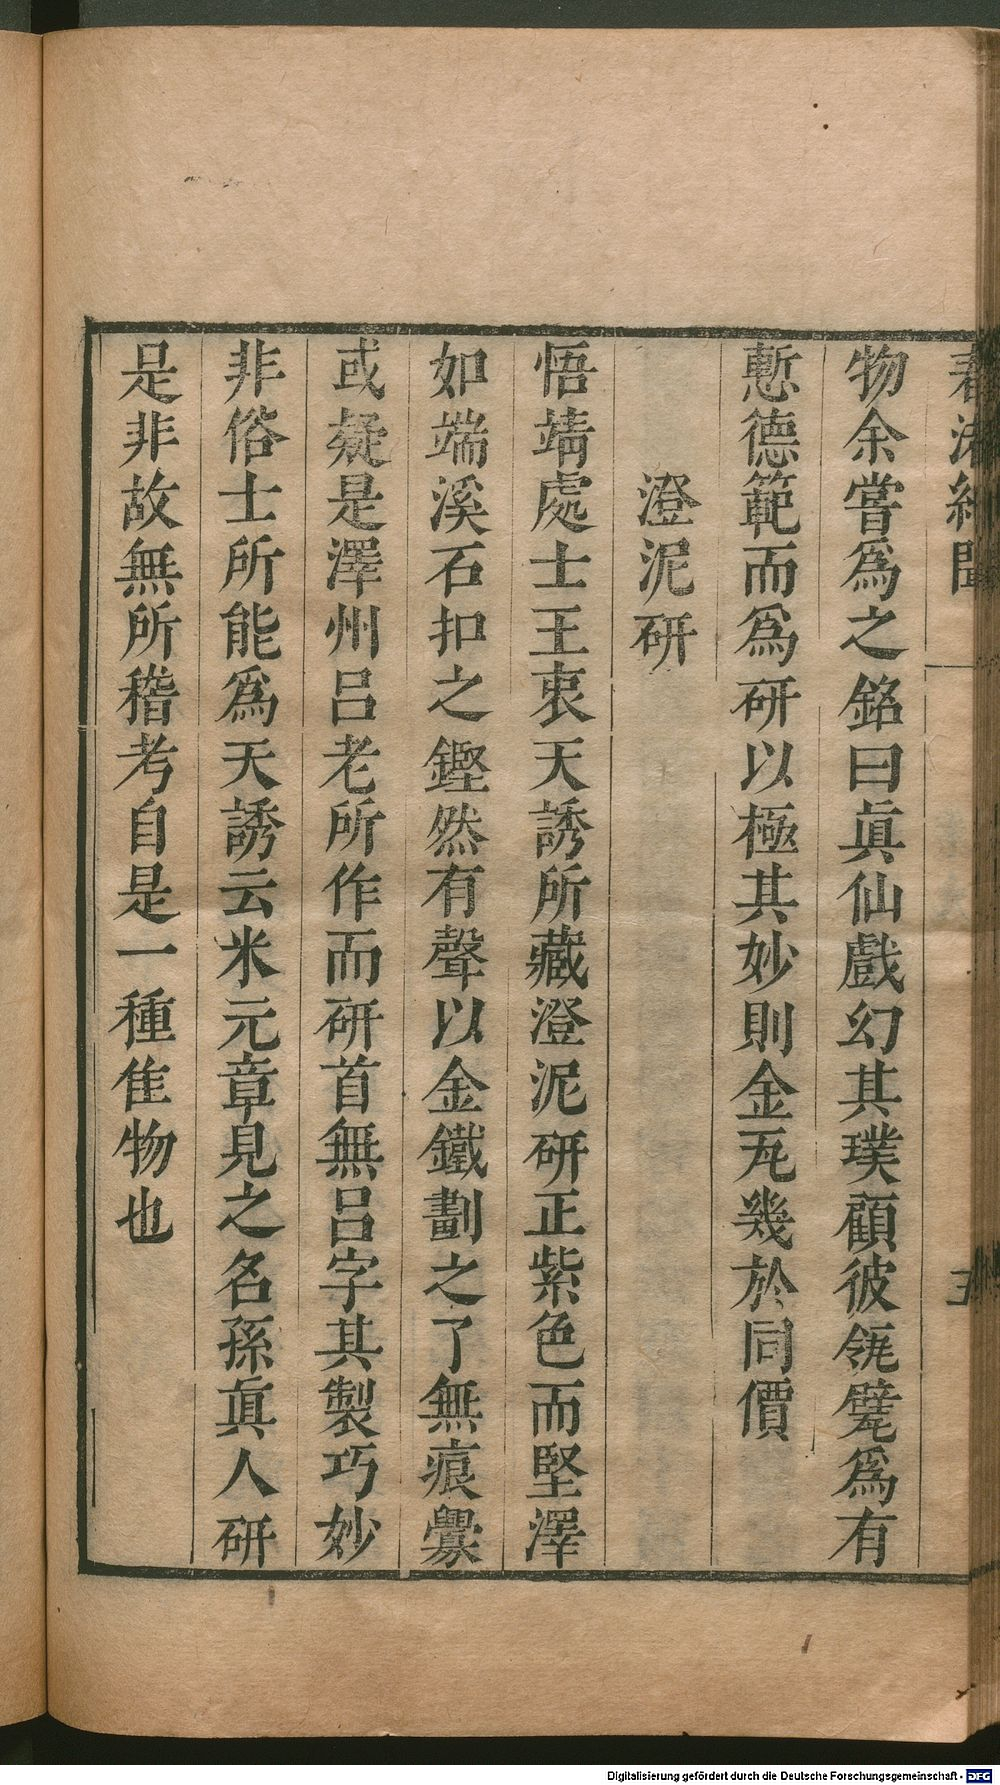 春渚紀聞
物余嘗爲之銘曰眞仙戲幻其璞顧彼瓴甓爲有
慙德範而爲研以極其妙則金瓦幾於同價
澄泥研
悟靖處士王衷天誘所藏澄泥研正紫色而堅澤
如端溪石扣之鏗然有聲以金鐵劃之了無痕釁
或疑是澤州呂老所作而研首無呂字其製巧妙
非俗士所能爲天誘云米元章見之名孫眞人研
是非故無所稽考自是一種隹物也
Digitalisierung gefördert durch die Deutsche Forschungsgemeinschaft - DFG